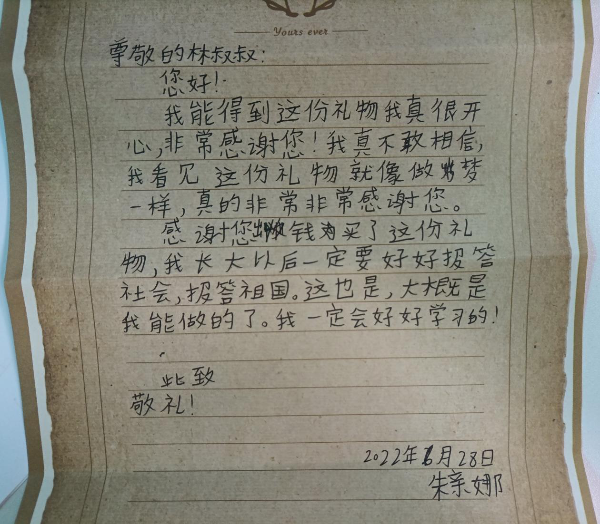 Yours ever
尊敬的林叔叔:
您好!
我能得到这份礼物我真很开
心,非常感谢您!我真不敢相信,
我看见这份礼物就像做梦
一样,真的非常非常感谢您。
感谢您出钱买了这份礼
物,我长大以后一定要好好报答
社会,报答祖国。这也是,大概是
我能做的了。我一定会好好学习的!
此致
敬礼!
2022年6月28日
朱亲娜